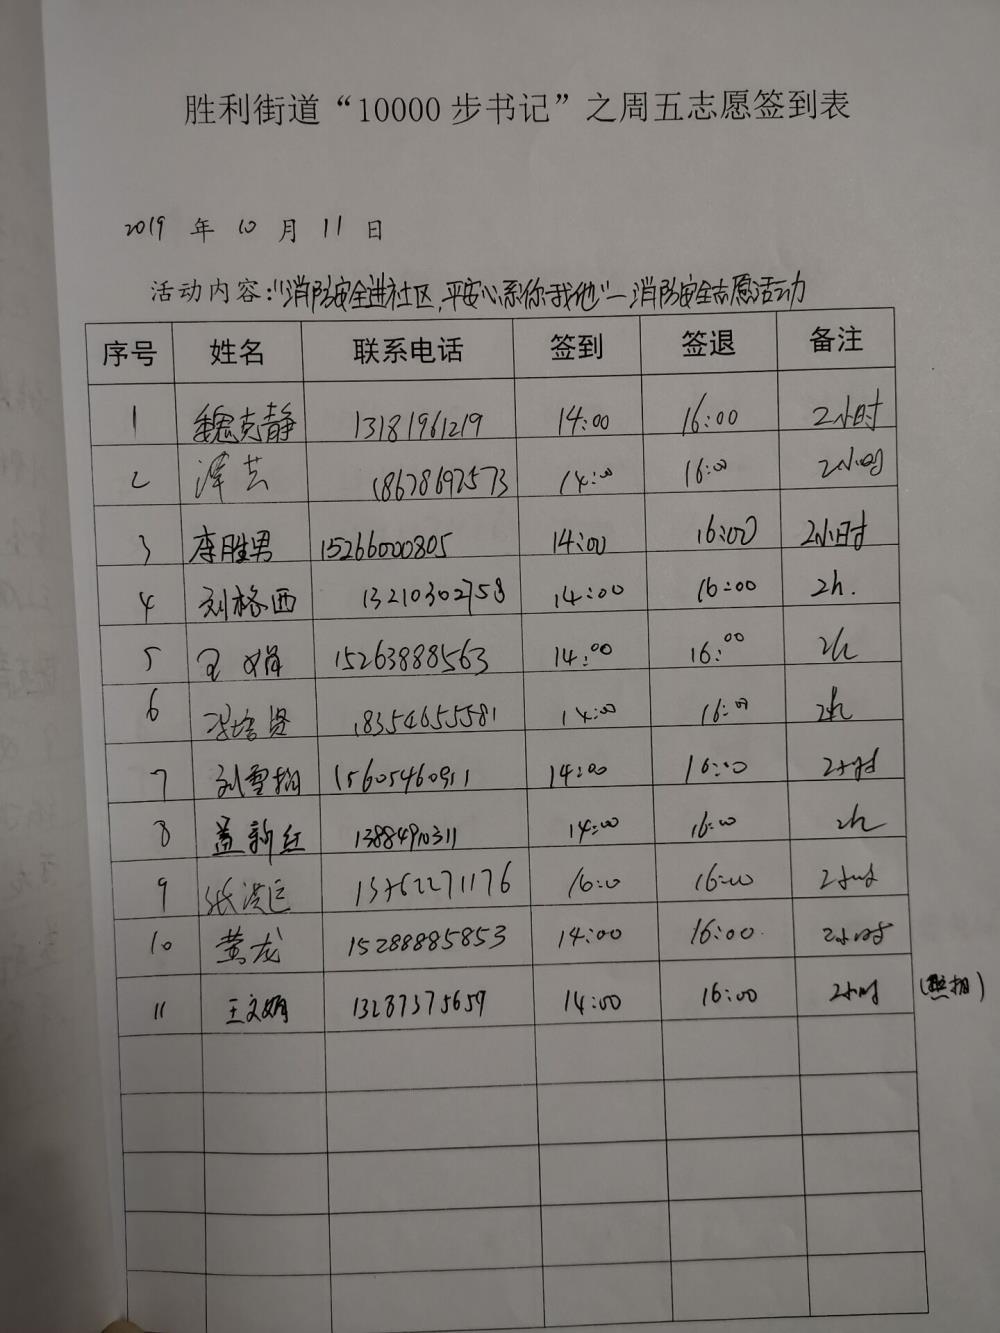 胜利街道“10000步书记”之周五志愿签到表
2019 年 10 月 11 日
活动内容:“消防安全进社区,平安心系你我他”—消防安全志愿活动
序号 姓名 联系电话 签到 签退 备注
1 魏克静 13181961219 14:00 16:00 2小时
2 泽芸 18678697573 14:00 16:00 2小时
3 李胜男 15266000805 14:00 16:00 2小时
4 刘格西 13210302758 14:00 16:00 2h.
5 15263888563 14:00 16:00 2h
6 18354655581 14:00 16:00 2h
7 刘雪栩 15605460911 14:00 16:00 2小时
8 盖新红 13884910311 14:00 16:00 2h
9 16:00 2小时
10 黄龙 15288885853 14:00 16:00 2小时
11 王文娟 13287375659 14:00 16:00 2小时 (照相)